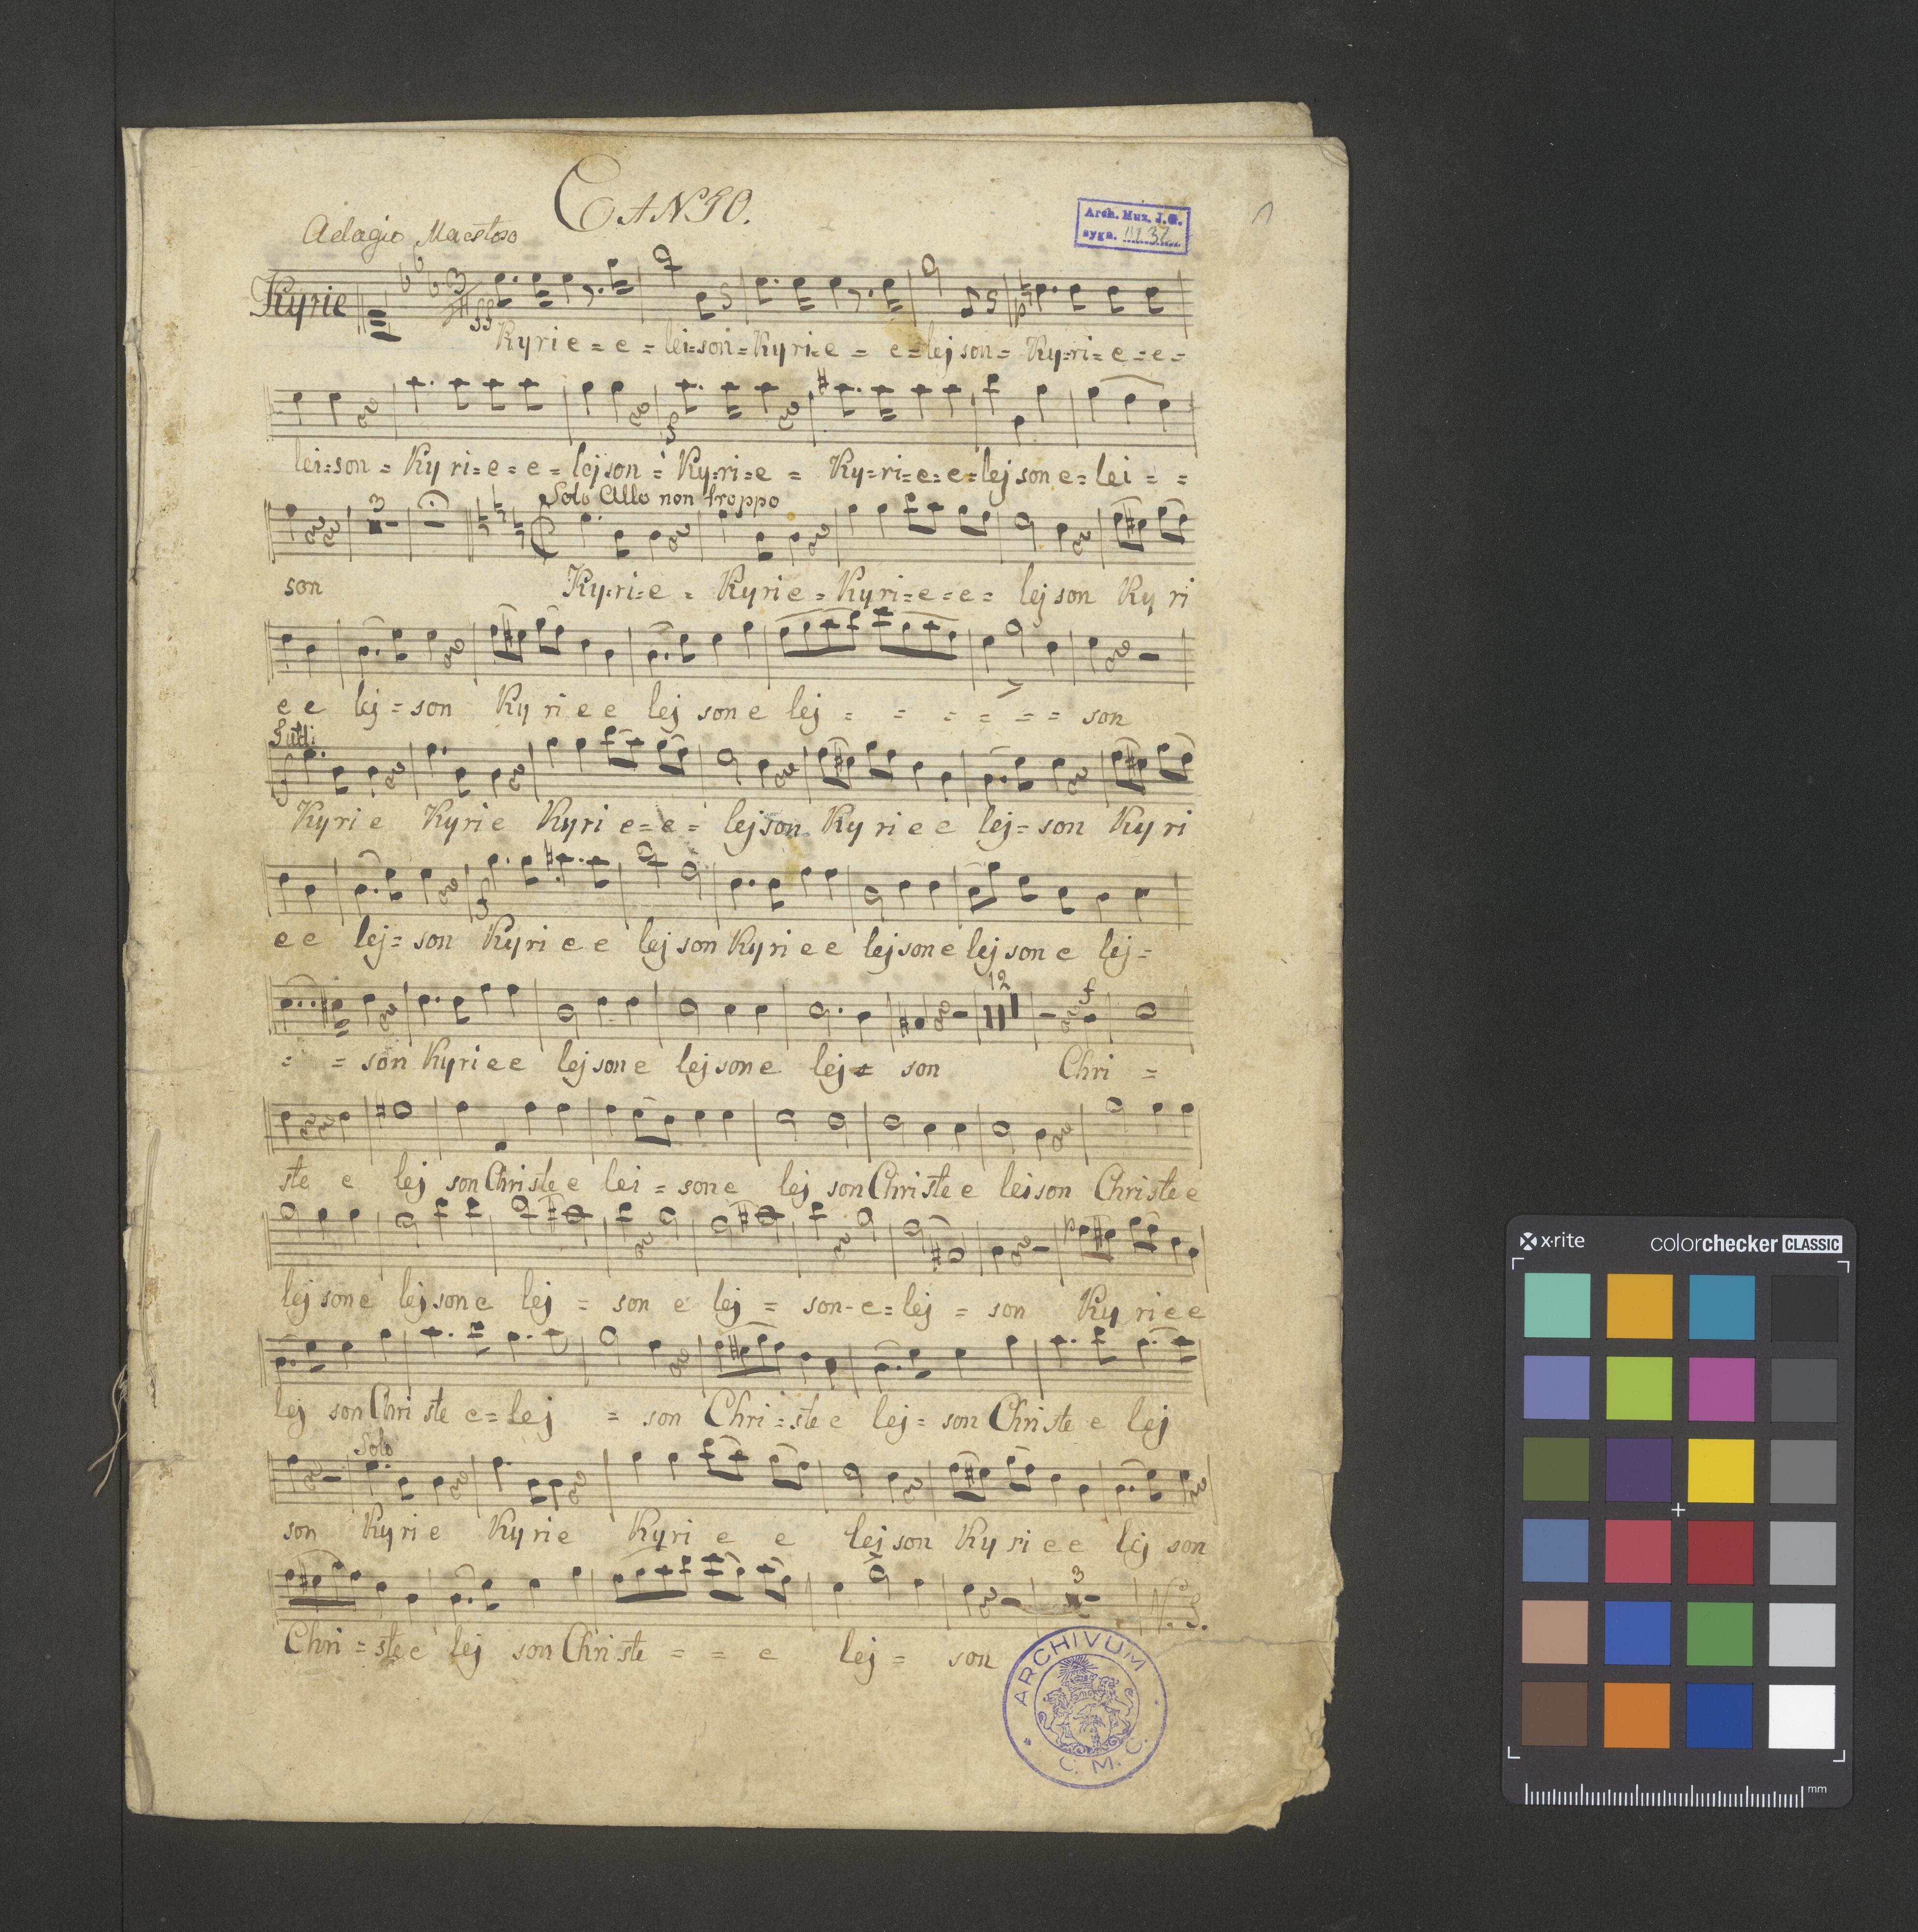 CANTO.
Adagio Maestoso
Arch. Muz. J.G.
sygn. III.37
1
Kyrie
ff
p
Kyri e = e = lei=son = Kyri=e = e = lej son = Ky=ri= e = e =
f
lei=son = Ky ri=e = e = lej son = Ky=ri=e = Ky=ri=e= e=lej son e= lei = =
3
Solo Allo non troppo
son Ky=ri=e = Kyri e = Kyri=e=e= lej son Ky ri
e e lej = son Ky ri e e lej son e lej = = = = = = son
Tutti
f
Kyri e Kyri e Kyri e=e= lej son Ky ri e e lej= son Ky ri
f
e e lej= son Kyri e e lej son Kyri e e lej son e lej son e lej=
12
f
= = son Kyri e e lej son e lej son e lej = son Chri =
ste e lej son Christe e lei = son e lej son Christe e leison Christe e
p
lej son e lej son e lej = son e lej = son-e=lej = son Ky ri e e
lej son Chri ste e=lej = son Chri=ste e lej= son Christe e lej
Solo
son Kyri e Kyri e Kyri e e lej son Ky ri e e lej son
3
V. S.
Chri = ste e lej son Christe = = e lej = son
ARCHIVUM
C. M. C.
x·rite
colorchecker CLASSIC
mm